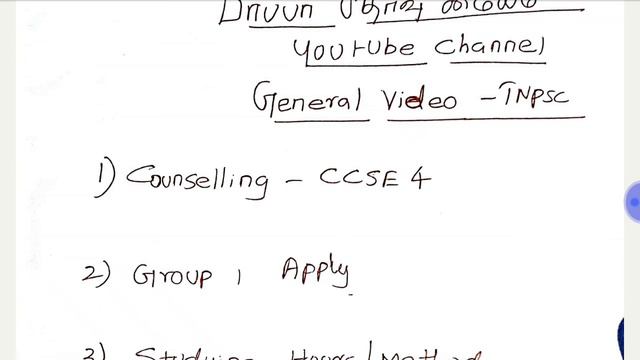 YouTube Channel
General Video - TNPSC
1) Counselling - CCSE 4
2) Group 1 Apply
3) Studying Hours/Method